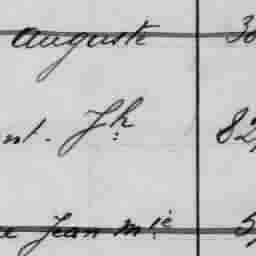 Auguste 30
nt. Jh 82
Jean Mie 5